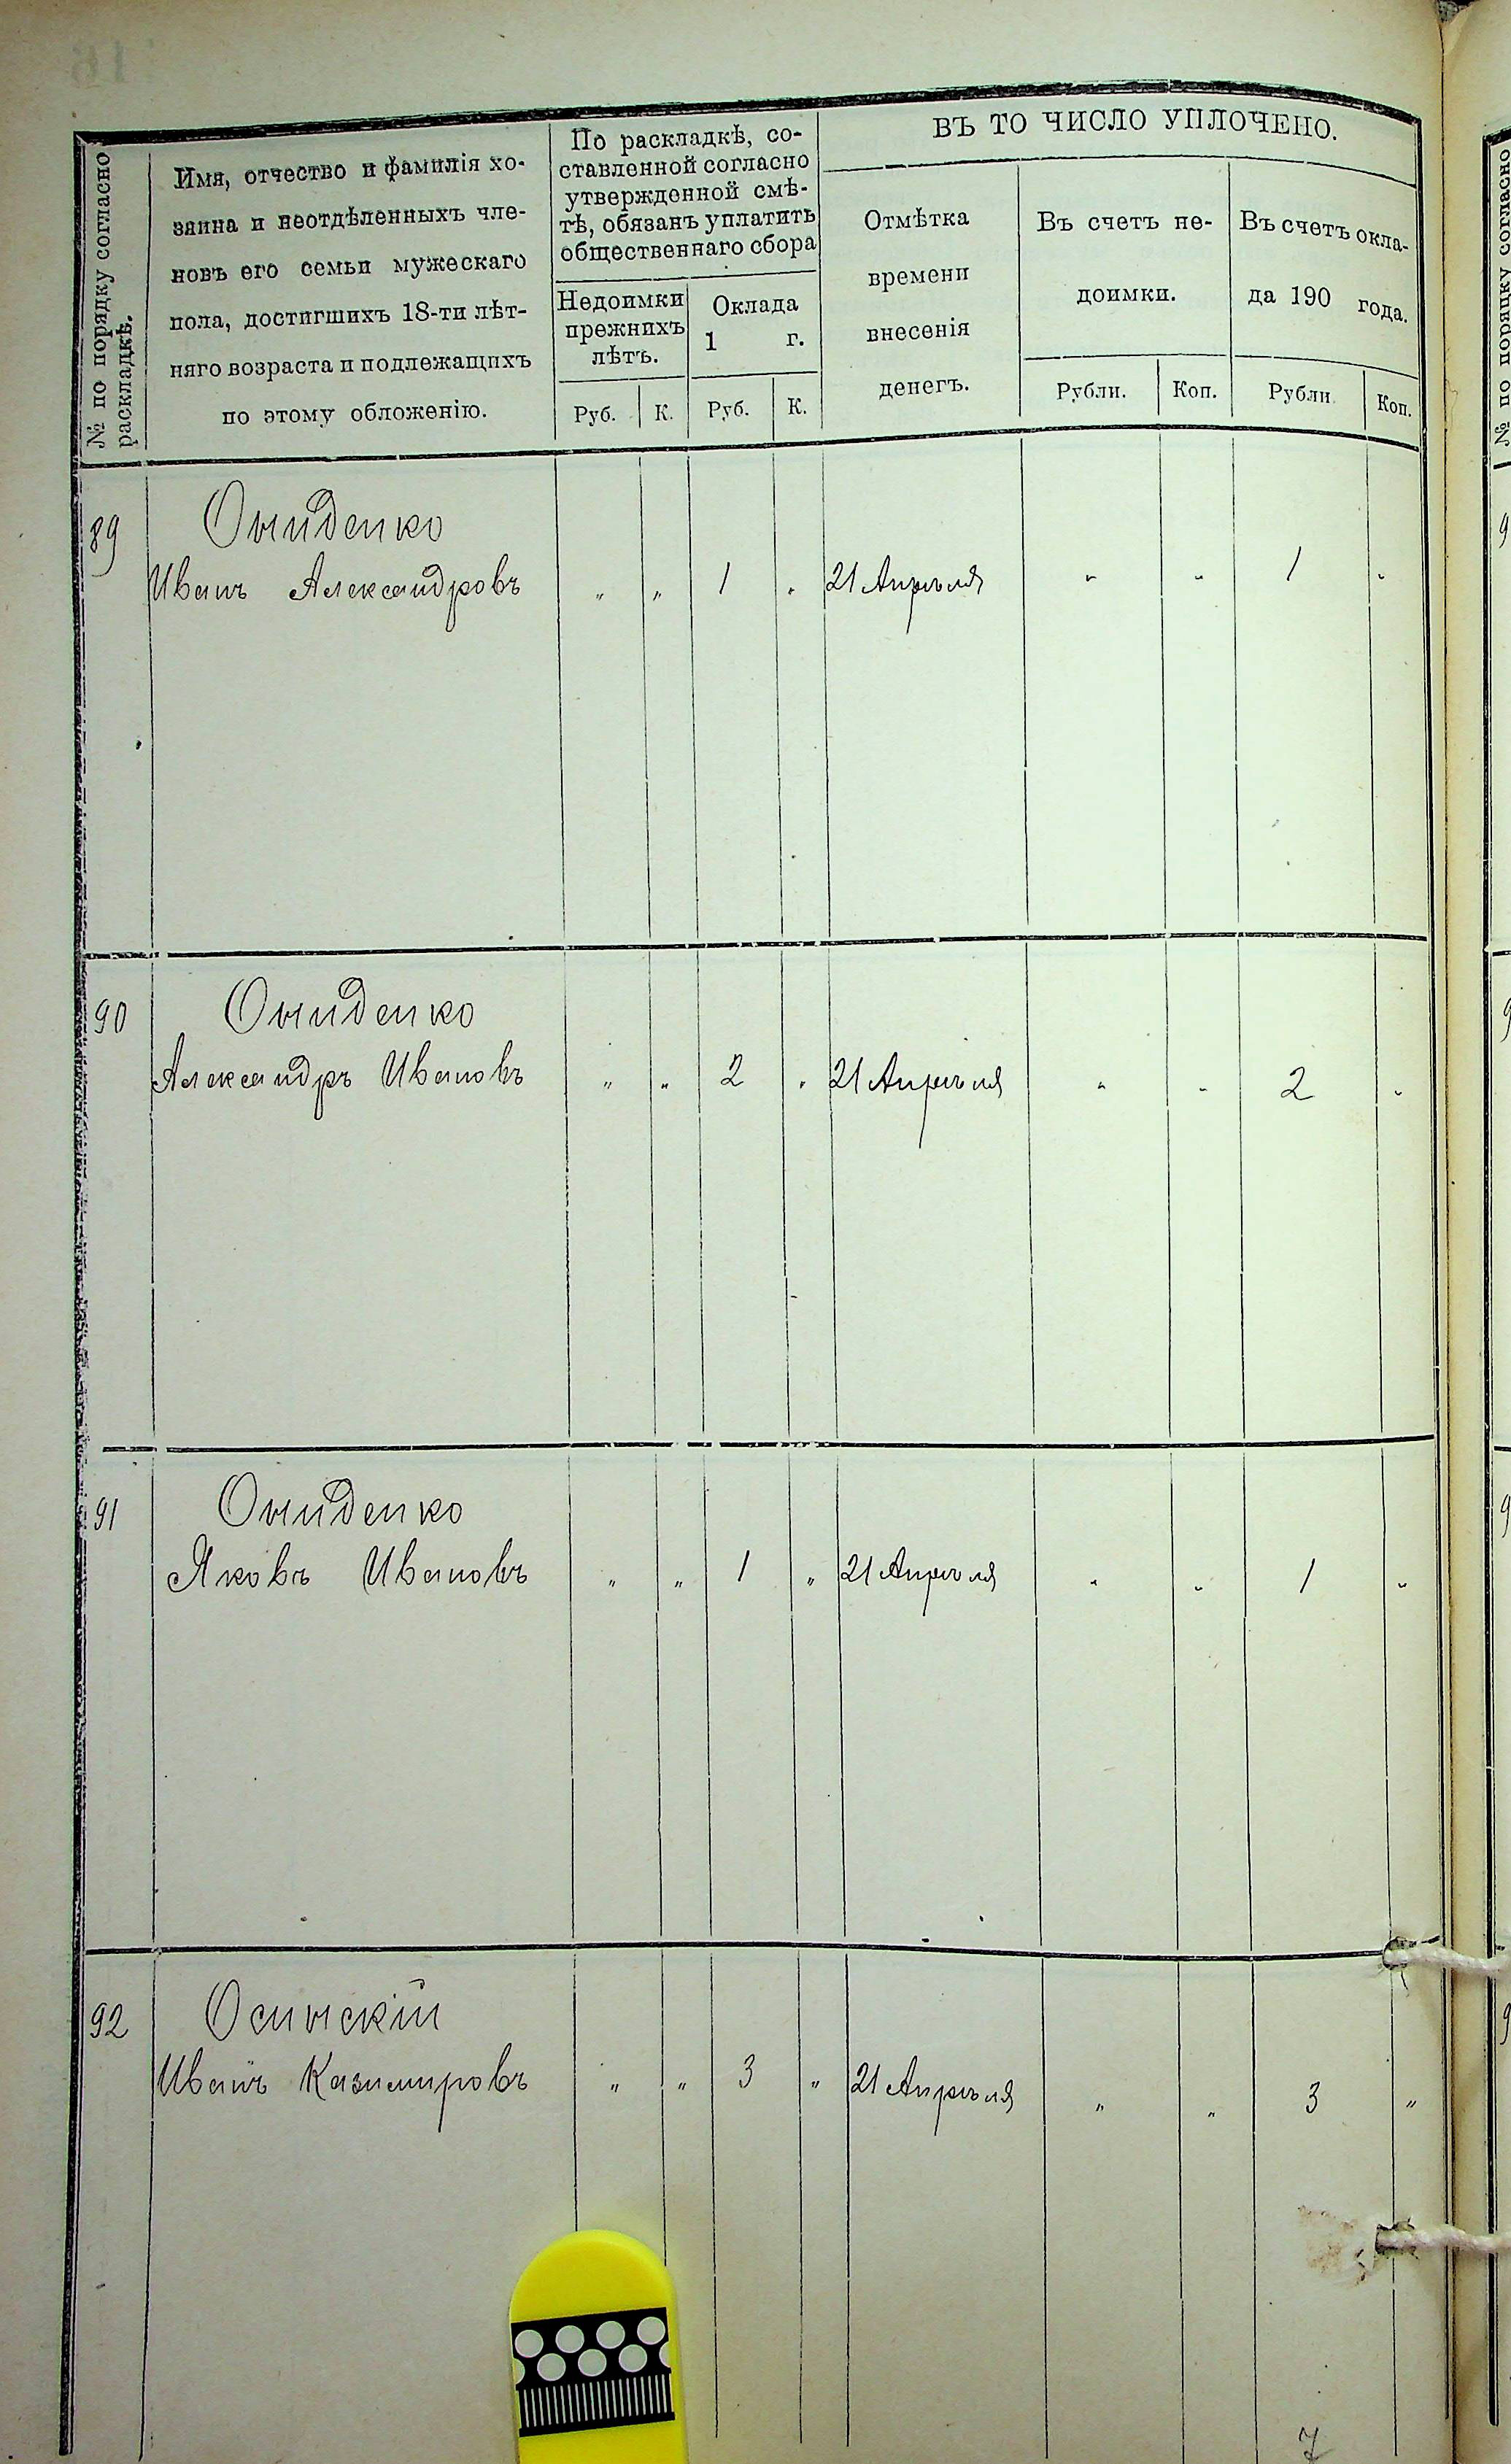 № по порядку согласно
раскладкѣ.
Имя, отчество и фамилія хо-
заина и неотдѣленныхъ чле-
новъ его семьи мужескаго
пола, достигшихъ 18-ти лѣт-
няго возраста и подлежащихъ
по этому обложенію.
По раскладкѣ, со-
ставленной согласно
утвержденной смѣ-
тѣ, обязанъ уплатить
общественнаго сбора
Недоимки
прежнихъ
лѣтъ.
Оклада
1 г.
Руб. К. Руб. К.
ВЪ ТО ЧИСЛО УПЛОЧЕНО.
Отмѣтка
времени
внесенія
денегъ.
Въ счетъ не-
доимки.
Въ счетъ окла-
да 190 года.
Рубли. Коп. Рубли. Коп.
89
Иванъ Александровъ „ „ 1 „ 21 Апрѣля „ „ 1 „
90
Александръ Ивановъ „ „ 2 „ 21 Апрѣля „ „ 2 „
91
Яковъ Ивановъ „ „ 1 „ 21 Апрѣля „ „ 1 „
92
Иванъ Казимировъ „ „ 3 „ 21 Апрѣля „ „ 3 „
7
№ по порядку согласно